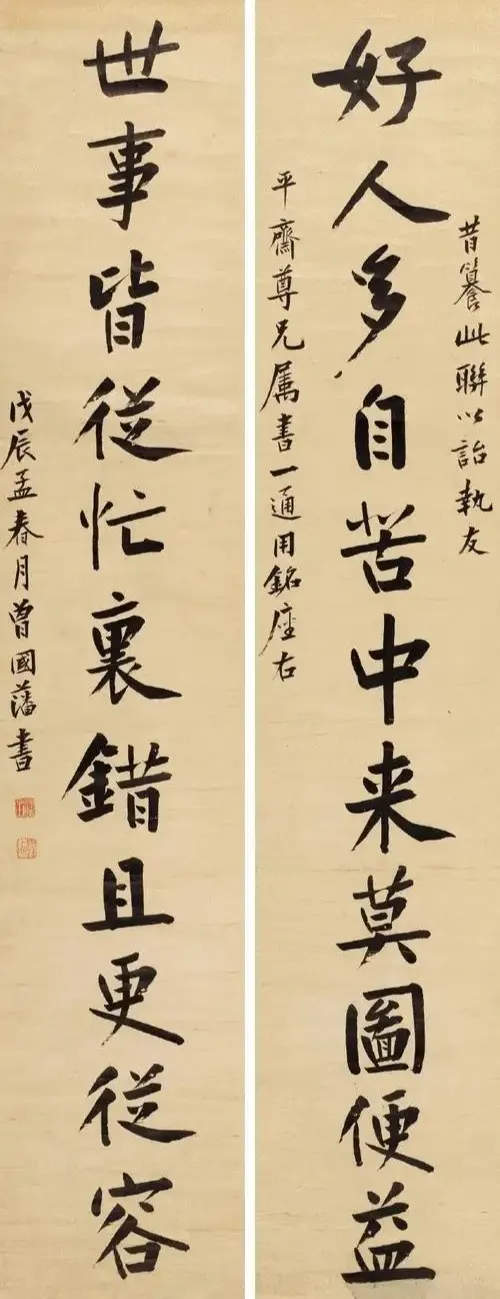 昔纂此聯以詒執友
好人多自苦中来莫圖便益
平齋尊兄属書一通用銘座右
世事皆從忙裏錯且更從容
戊辰孟春月曾國藩書